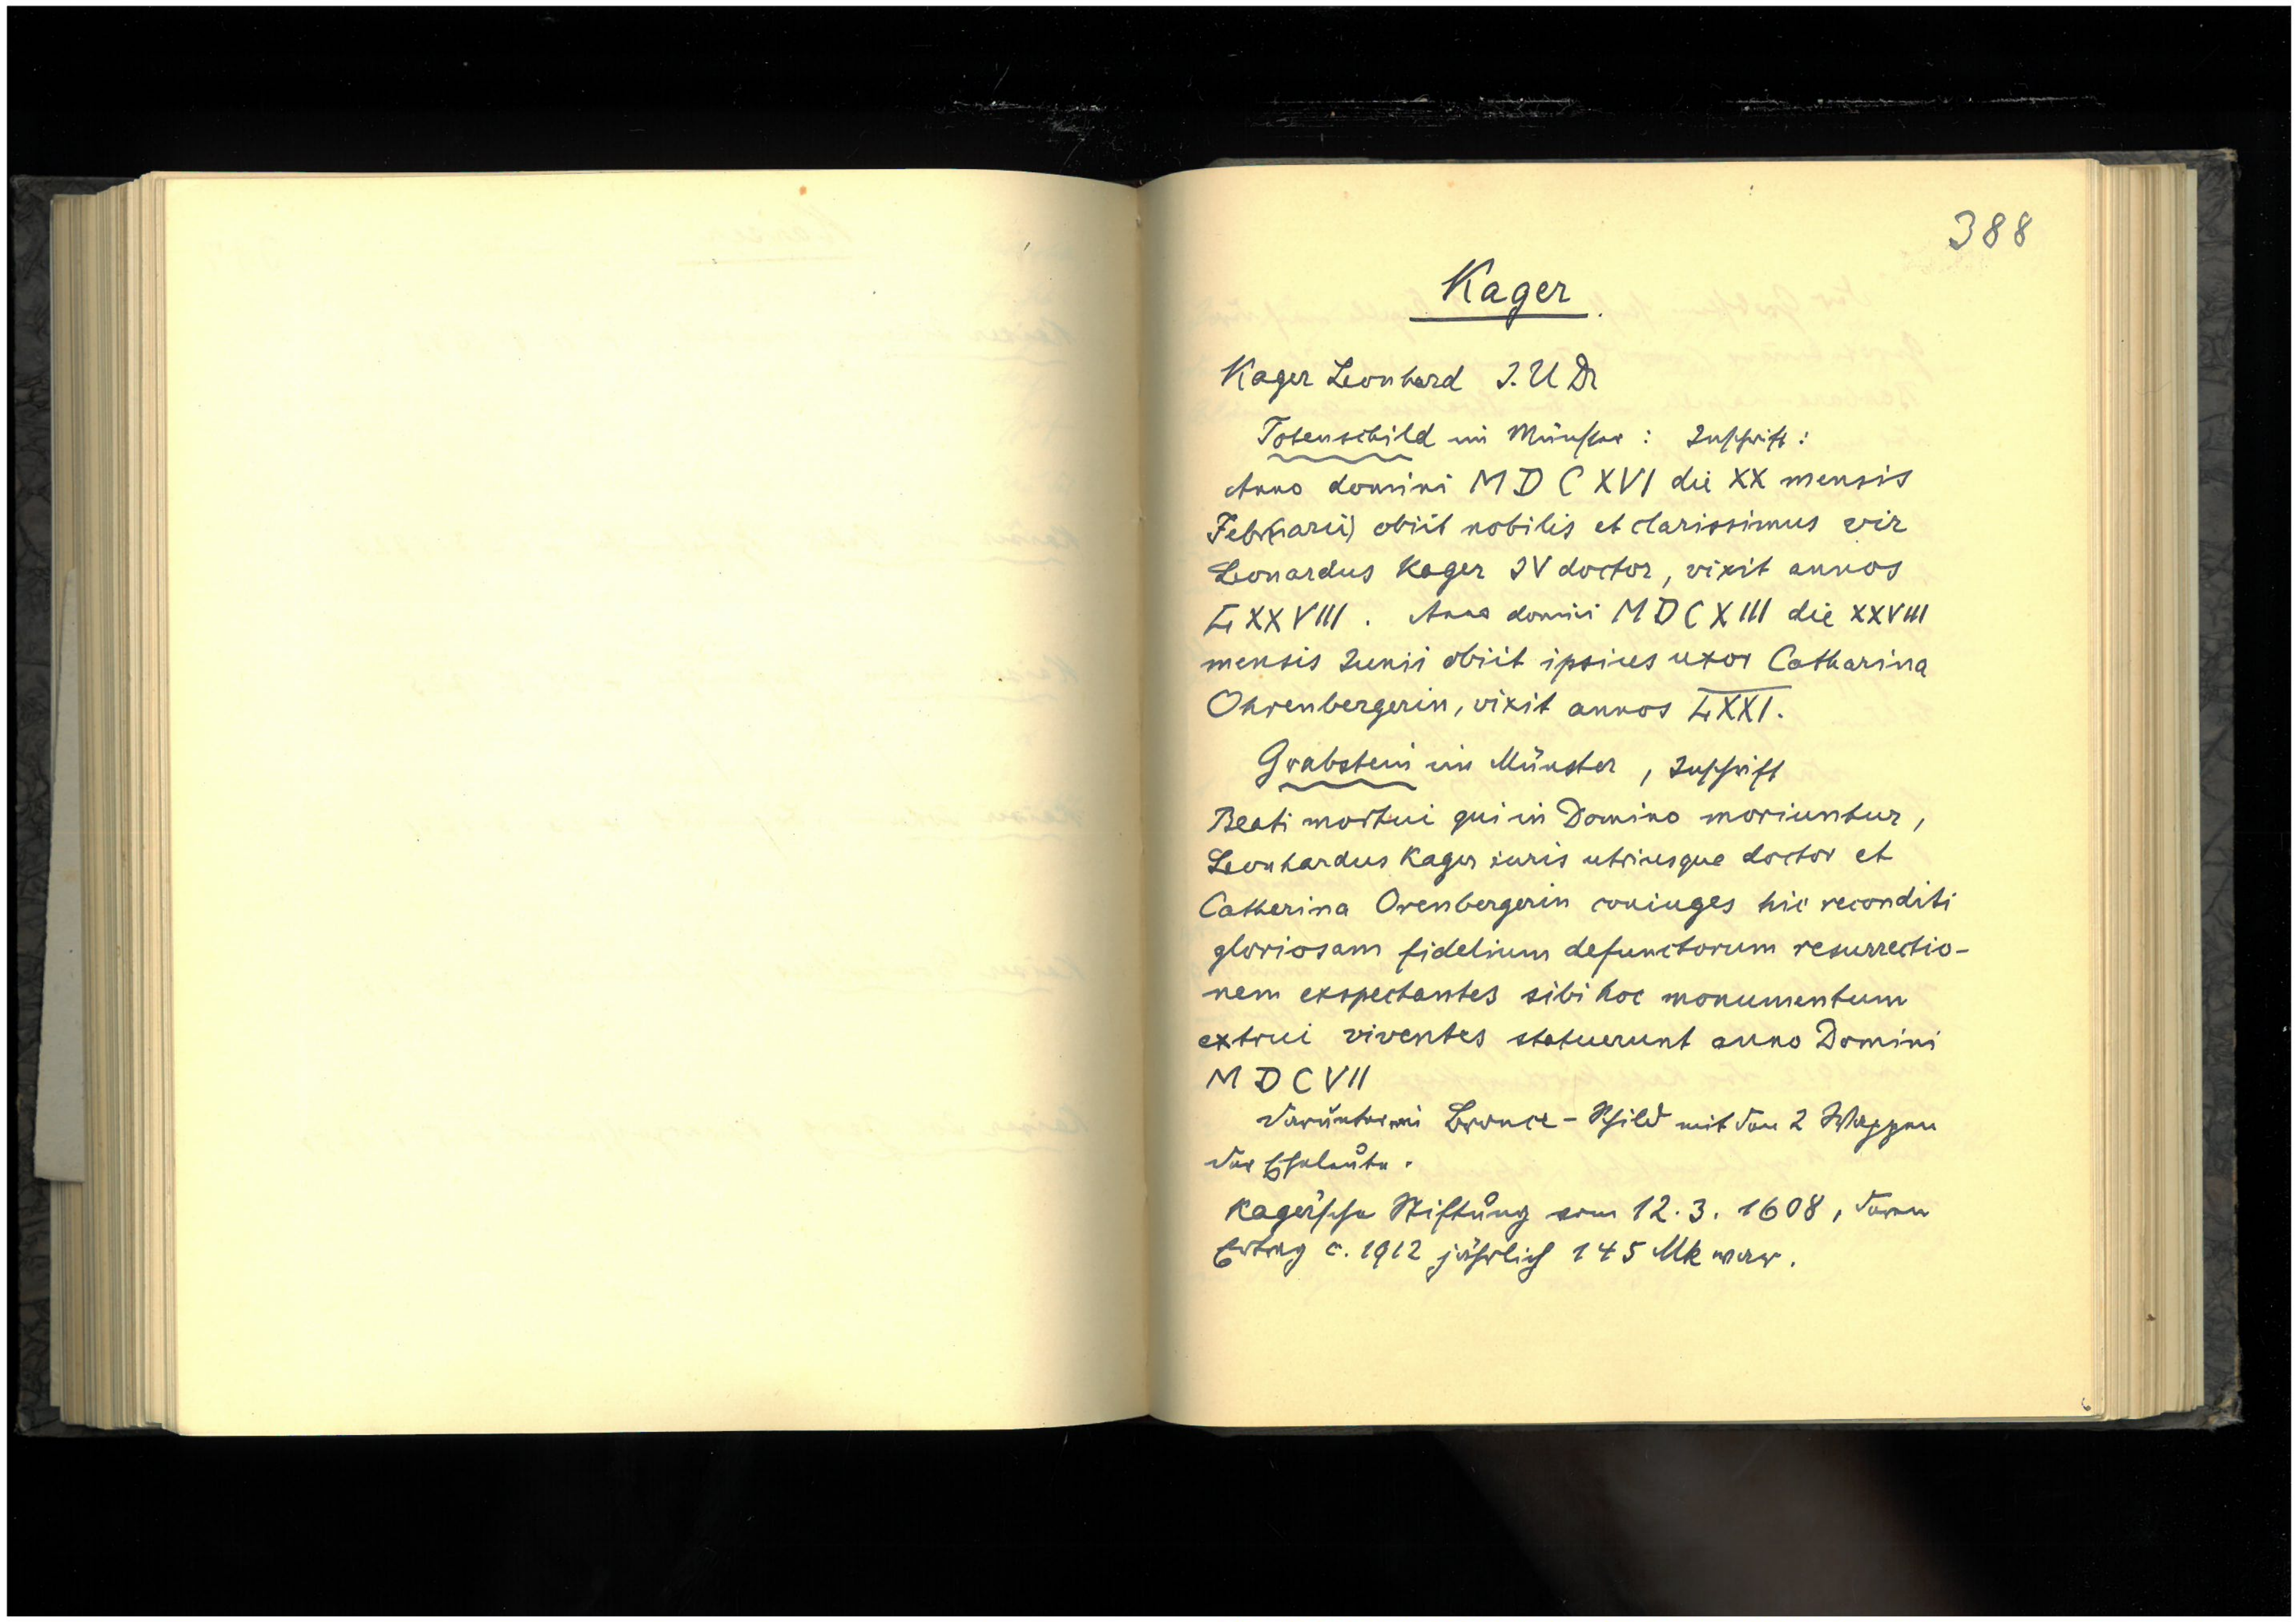 388
Kager
Kager Leonhard J. U Dr
Totenschild im Münster : Inschrift :
Anno domini M D C XVI die XX mensis
Febr(uarii) obiit nobilis et clarissimus vir
Leonardus Kager JV doctor, vixit annos
LXXVIII. Anno domini M D C XIII die XXVIII
mensis Junii obiit ipsius uxor Catharina
Ohrenbergerin, vixit annos LXXI.
Grabstein im Münster, Inschrift
Beati mortui qui in Domino moriuntur,
Leonhardus Kager iuris utriusque doctor et
Catherina Orenbergerin coniuges hic reconditi
gloriosam fidelium defunctorum resurrectio-
nem exspectantes sibi hoc monumentum
extrui viventes statuerunt anno Domini
M D C VII
Darunter ein Bronce-Schild mit den 2 Wappen
der Eheleute.
Kager'sche Stiftung vom 12.3.1608, deren
Ertrag c. 1912 jährlich 145 Mk war.